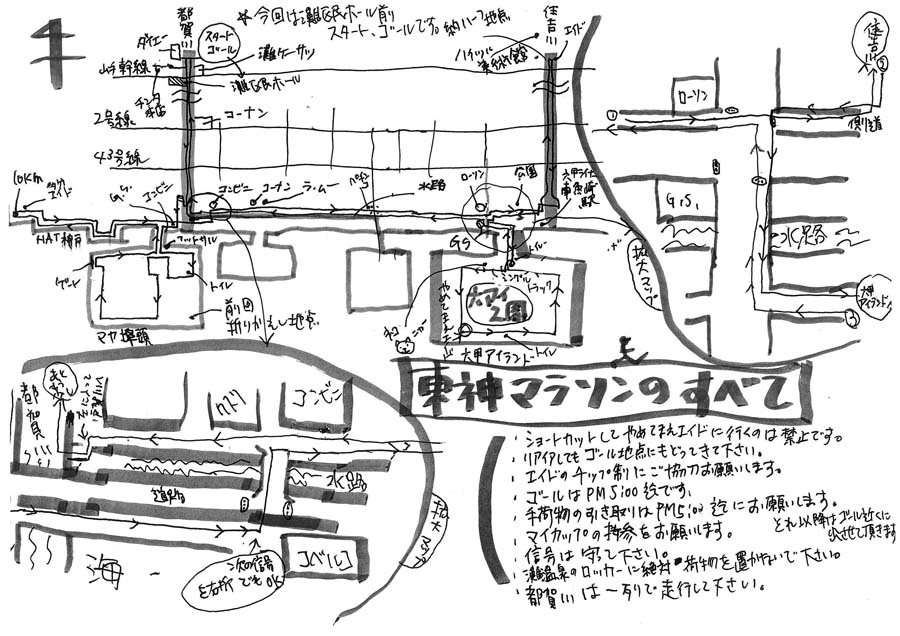 *今回は灘区民ホール前
スタート、ゴールです。
都賀川
住吉川
エイド
ダイエー
スタート
ゴール
灘ケーサツ
山手幹線
灘区民ホール
コーナン
2号線
43号線
10Km
エイド
コンビニ
コンビニ
コーナン
ラ・ムー
パチンコ
水路
ローソン
公園
六甲ライナー
南魚崎駅
HAT神戸
フットサル
GS
トイレ
ゲート
トイレ
マヤ埠頭
前回
折りかえし地点
ジャングル
トラック
六アイ
2周
ネコ
六甲アイランド
トイレ
拡大マップ
住吉川
ローソン
側道
G.S.
水路
六甲
アイランド
東神マラソンのすべて
・ショートカットしてやめてまえエイドに行くのは禁止です。
・リアイアしてもゴール地点にもどってきて下さい。
・エイドのチップ制にご協力お願いします。
・ゴールはPM5:00迄です。
・手荷物の引き取りはPM5:00迄にお願いします。
それ以降はゴール近くに
・マイカップの持参をお願いします。
・信号は守って下さい。
・灘温泉のロッカーに絶対荷物を置かないで下さい。
・都賀川は一列で走行して下さい。
都賀川
コンビニ
道路
水路
コベルコ
海
次の信号
を右折でもOK
拡大マップ